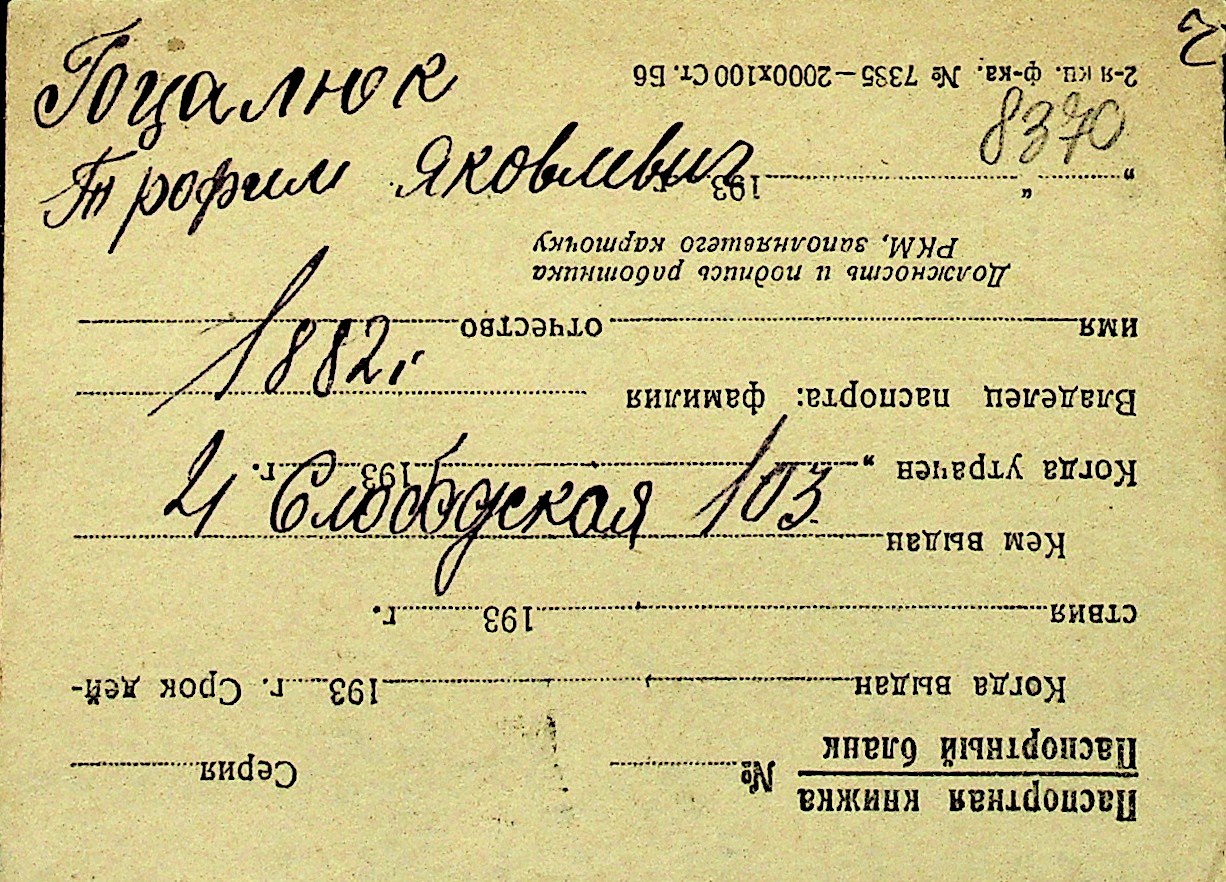 Гоцалюк
Трофим Яковлевич
1882 г
Слободская 103
8370
Паспортная книжка
Паспортный бланк
№ Серия
Когда выдан 193 г. Срок дей-
ствия 193 г.
Кем выдан
Когда утрачен „ 193 г.
Владелец паспорта: фамилия
имя отчество
Должность и подпись работника
РКМ, заполнявшего карточку
„ “ 193
2-я кн. ф-ка. № 7335—2000х100 Ст. Б6